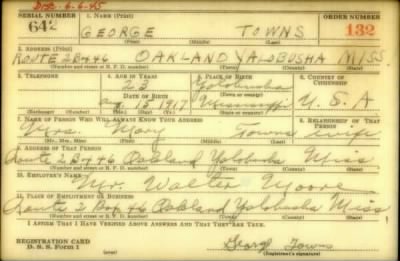 Dis. 6-6-45
SERIAL NUMBER 1. NAME (Print) ORDER NUMBER
642 GEORGE TOWNS 132
(First) (Middle) (Last)
2. ADDRESS (Print)
ROUTE 2 BX 46 OAKLAND YALOBUSHA MISS
(Number and street or R. F. D. number) (Town) (County) (State)
3. TELEPHONE 4. AGE IN YEARS 5. PLACE OF BIRTH 6. COUNTRY OF CITIZENSHIP
23 Yalobusha
DATE OF BIRTH (Town or county)
Aug 15 1917 Mississippi U.S.A
(Exchange) (Number) (Mo.) (Day) (Yr.) (State or country)
7. NAME OF PERSON WHO WILL ALWAYS KNOW YOUR ADDRESS 8. RELATIONSHIP OF THAT PERSON
Mrs. Mary Towns wife
(Mr., Mrs., Miss) (First) (Middle) (Last)
9. ADDRESS OF THAT PERSON
Route 2 Bx 46 Oakland Yalobusha Miss
(Number and street or R. F. D. number) (Town) (County) (State)
10. EMPLOYER'S NAME
Mr. Walter Moore
11. PLACE OF EMPLOYMENT OR BUSINESS
Route 2 Box 46 Oakland Yalobusha Miss
(Number and street or R. F. D. number) (Town) (County) (State)
I AFFIRM THAT I HAVE VERIFIED ABOVE ANSWERS AND THAT THEY ARE TRUE.
REGISTRATION CARD
D. S. S. Form 1
George Towns
(Registrant's signature)